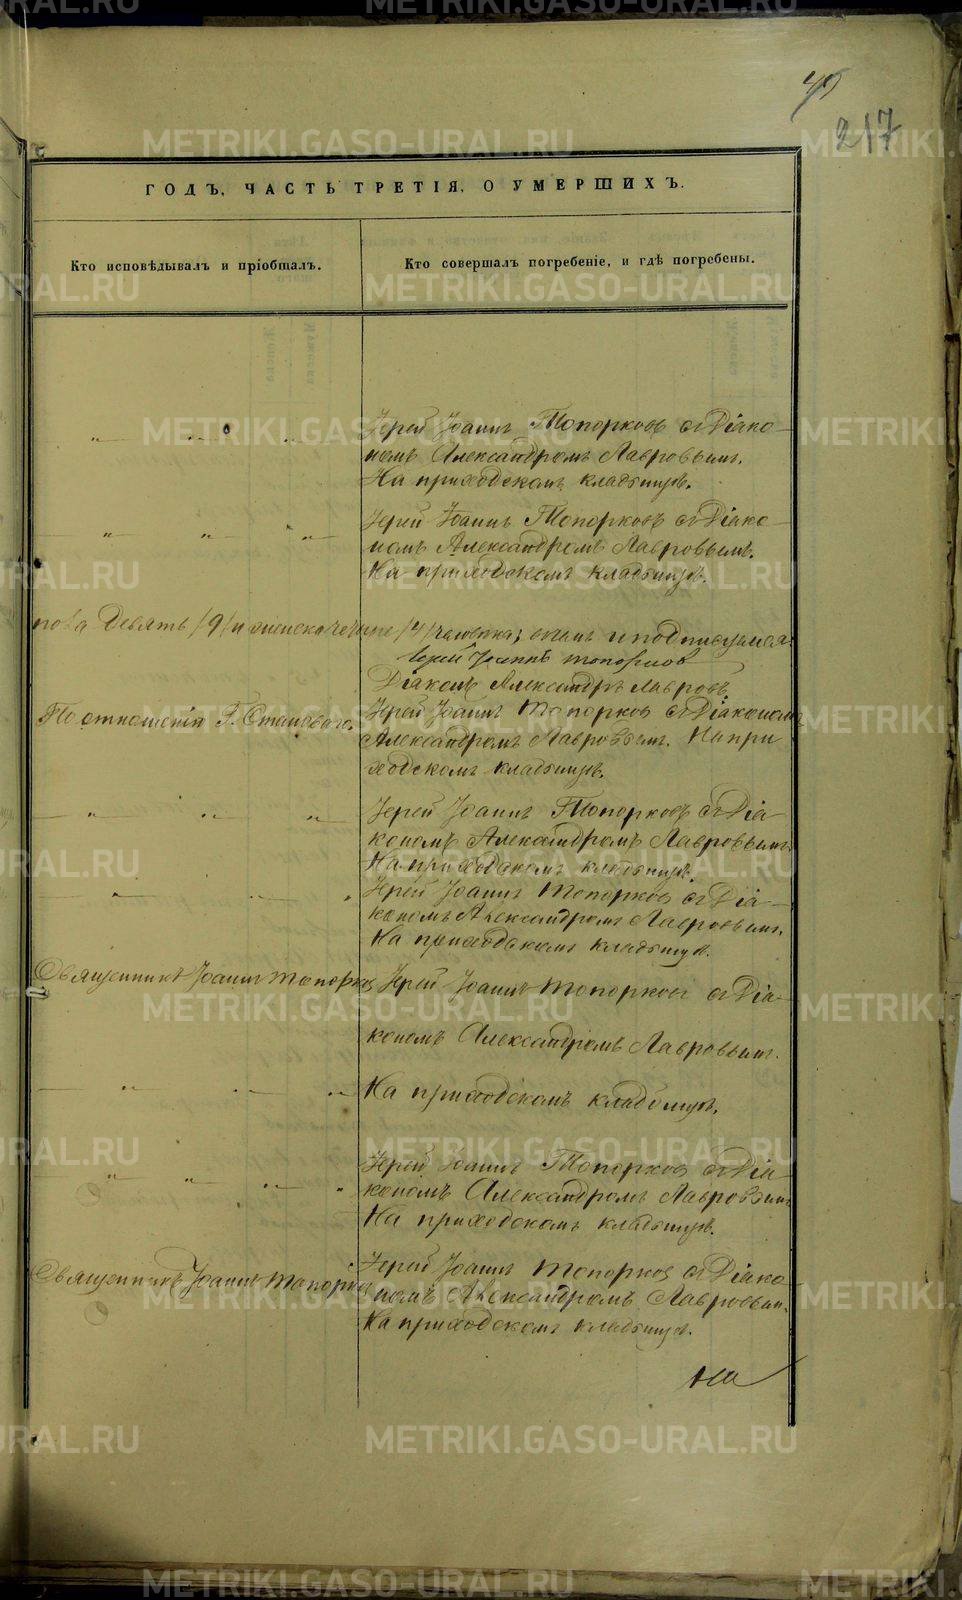 217
ГОДЪ, ЧАСТЬ ТРЕТІЯ, О УМЕРШИХЪ.
Кто исповѣдывалъ и пріобщалъ.
Кто совершалъ погребеніе, и гдѣ погребены.
Іерей Іоаннъ Топорковъ съ Діако-
номъ Александромъ Лавровымъ.
На приходскомъ кладбищѣ.
Іерей Іоаннъ Топорковъ съ Діако-
номъ Александромъ Лавровымъ.
На приходскомъ кладбищѣ.
пола девять /9/ и женска четыре /4/ человѣка; въ чемъ и подписуемся:
Іерей Іоаннъ Топорковъ
Діаконъ Александръ Лавровъ.
По отношенію Г. Становаго.
Іерей Іоаннъ Топорковъ съ Діакономъ
Александромъ Лавровымъ. На при
ходскомъ кладбищѣ.
Іерей Іоаннъ Топорковъ съ Діа-
кономъ Александромъ Лавровымъ.
На приходскомъ кладбищѣ.
Іерей Іоаннъ Топорковъ съ Діа-
кономъ Александромъ Лавровымъ.
На приходскомъ кладбищѣ.
Священникъ Іоаннъ Топорковъ
Іерей Іоаннъ Топорковъ съ Діа-
кономъ Александромъ Лавровымъ.
На приходскомъ кладбищѣ.
Іерей Іоаннъ Топорковъ съ Діа-
кономъ Александромъ Лавровымъ
На приходскомъ кладбищѣ.
Священникъ Іоаннъ Топорковъ
Іерей Іоаннъ Топорковъ съ Діако-
номъ Александромъ Лавровым.
На приходскомъ кладбищѣ.
METRIKI.GASO-URAL.RU